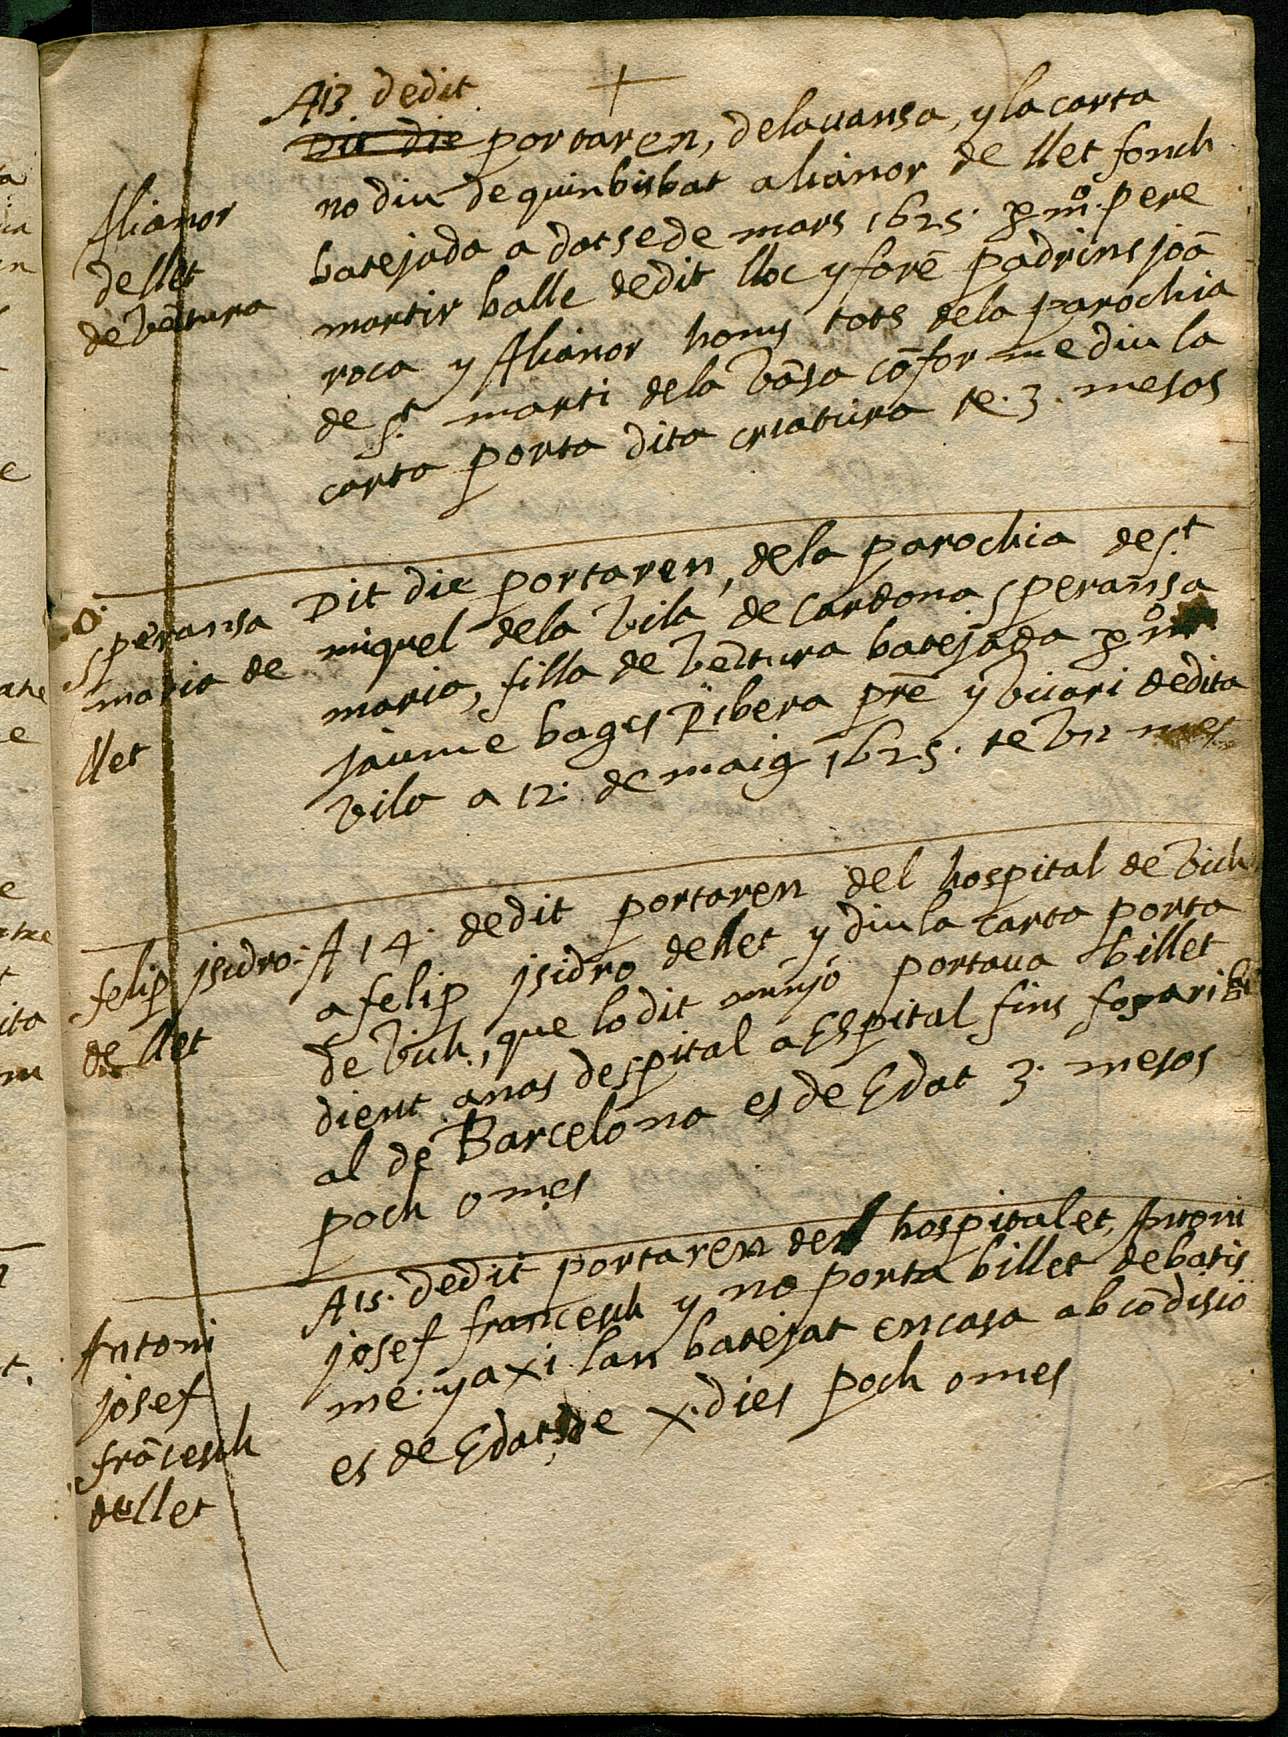 A 13. dedit
Dit die portaren, delavansa, y la carta
Alianor
dellet
de vētura
no diu de quin bisbat alianor de llet fonch
batejada a dotse de mars 1625. per mº. pere
martir balle dedit lloc y forē padrins joā
roca y Alianor homs tots dela parochia
de St. marti dela vāsa cōfor me diu la
carta porta dita criatura te. 3. mesos
Speransa
maria de
llet
Dit die portaren, dela parochia de St.
miquel dela vila de Cardona Speransa
maria, filla de vētura batejada per mº
jaume bages Ribera prē y vicari dedita
vila a 12. de maig 1625. te vn mes
felip jsidro
de llet
A 14. dedit portaren del hospital de vich
a felip jsidro dellet y diu la carta porta
de vich, que lo dit minjo portava billet
dient anas despital a Espital fins
al de Barcelona es de Edat 3. mesos
poch o mes
Antoni
josef
frācesch
dellet
A 15. dedit portaren del hospitalet, Antoni
josef francesch y no porta billet debatis
me. y axi lan batejat encasa ab cōdisio
es de Edat de x. dies poch o mes